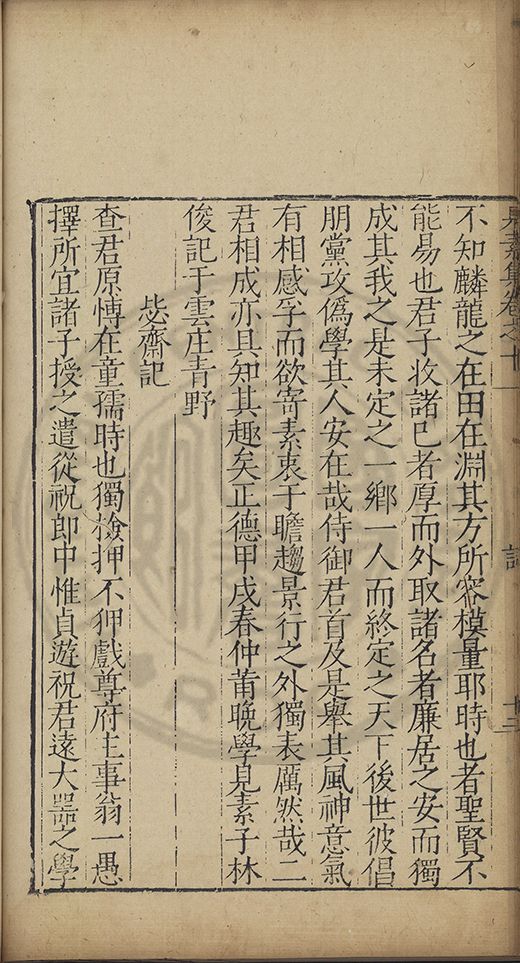 見素集卷之十一
記
十三
不知麟龍之在田在淵其方所容模量耶時也者聖賢不
能易也君子收諸已者厚而外取諸名者廉居之安而獨
成其我之是未定之一鄉一人而終定之天下後世彼倡
朋黨攻僞學其人安在哉侍御君首及是舉其風神意氣
有相感孚而欲寄素衷于瞻趨景行之外獨表厲然哉二
君相成亦具知其趣矣正德甲戌春仲莆晚學見素子林
俊記于雲庄青野
毖齋記
查君原愽在童孺時也獨檢押不狎戲尊府主事翁一愚
擇所宜諸子授之遣從祝郎中惟貞遊祝君遠大噐之學